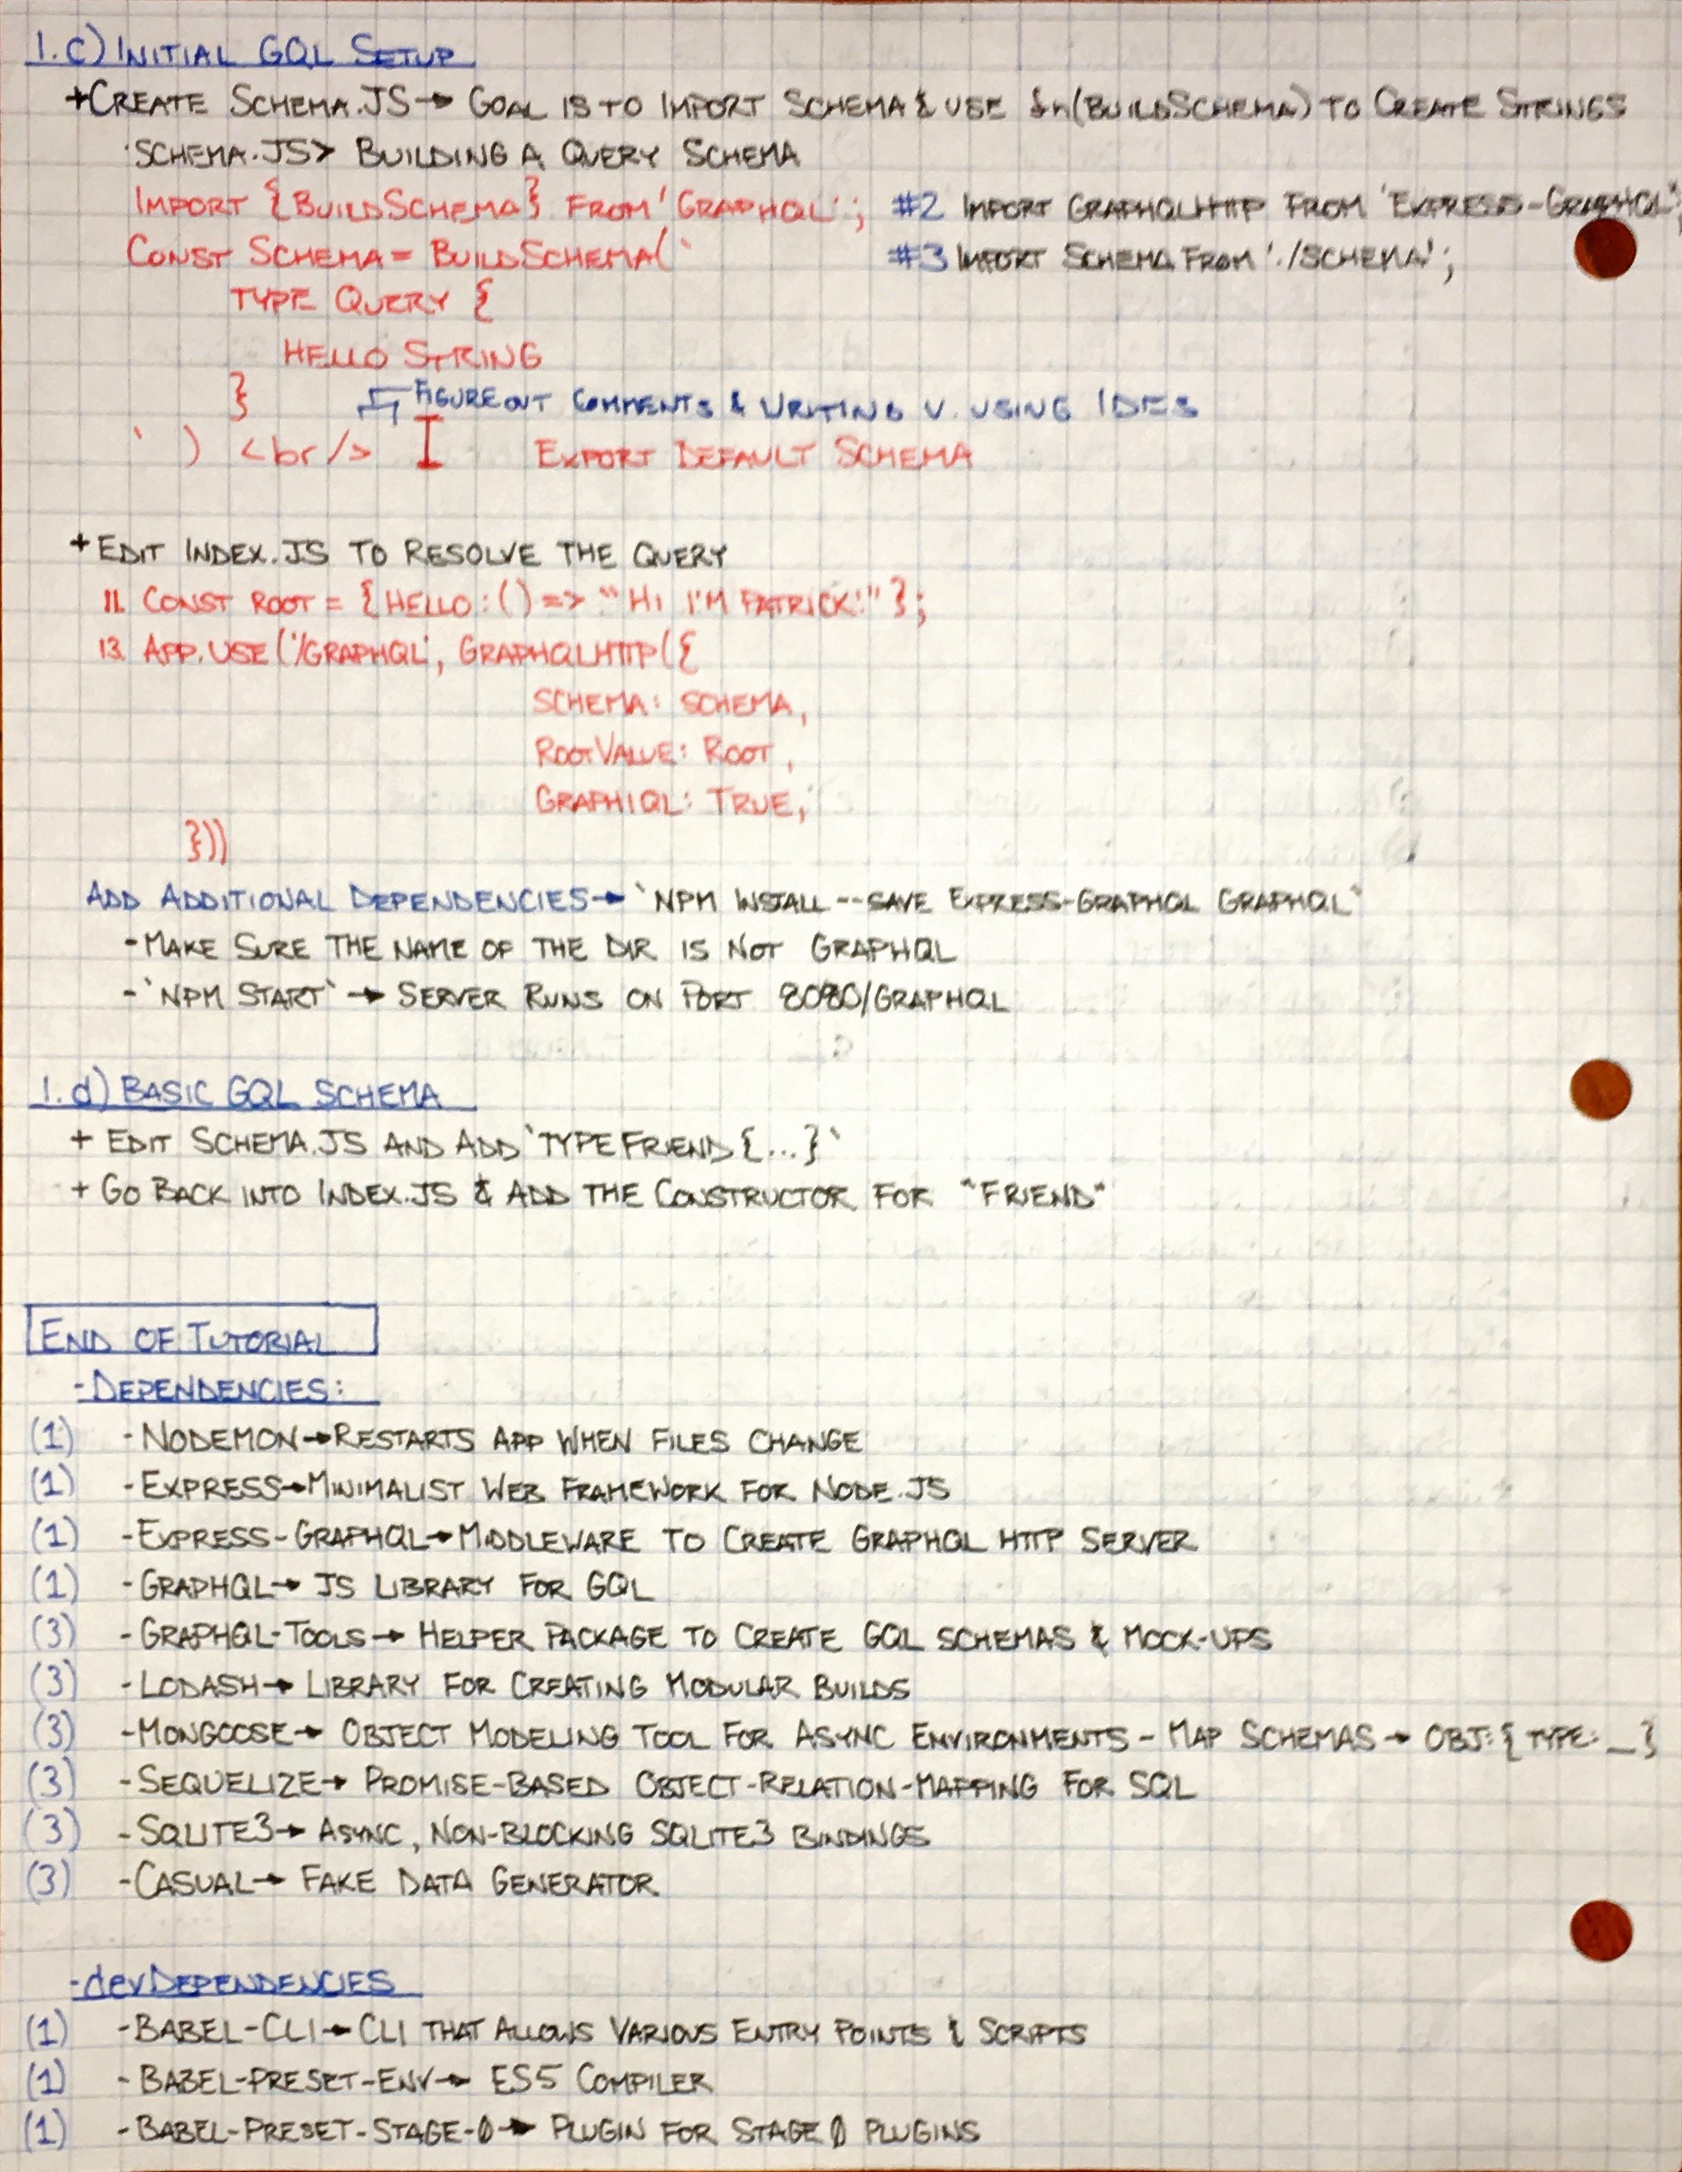 1.c) INITIAL GQL SETUP
+CREATE SCHEMA.JS→ GOAL IS TO IMPORT SCHEMA & USE fn(BUILDSCHEMA) TO CREATE STRINGS
·SCHEMA.JS> BUILDING A QUERY SCHEMA
IMPORT {BUILDSCHEMA} FROM 'GRAPHQL'; #2 IMPORT GRAPHQLHTTP FROM 'EXPRESS-GRAPHQL';
CONST SCHEMA = BUILDSCHEMA(` #3 IMPORT SCHEMA FROM './SCHEMA';
TYPE QUERY {
HELLO STRING
}
FIGURE OUT COMMENTS & WRITING V. USING IDES
` ) <br/> EXPORT DEFAULT SCHEMA
+ EDIT INDEX.JS TO RESOLVE THE QUERY
11. CONST ROOT = {HELLO: () => "HI I'M PATRICK!"};
13. APP.USE('/GRAPHQL', GRAPHQLHTTP({
SCHEMA: SCHEMA,
ROOTVALUE: ROOT,
GRAPHIQL: TRUE,
}))
ADD ADDITIONAL DEPENDENCIES→ `NPM INSTALL --SAVE EXPRESS-GRAPHQL GRAPHQL`
-MAKE SURE THE NAME OF THE DIR IS NOT GRAPHQL
-`NPM START` → SERVER RUNS ON PORT 8080/GRAPHQL
1.d) BASIC GQL SCHEMA
+ EDIT SCHEMA.JS AND ADD `TYPE FRIEND {...}`
+ GO BACK INTO INDEX.JS & ADD THE CONSTRUCTOR FOR "FRIEND"
END OF TUTORIAL
-DEPENDENCIES:
(1) -NODEMON→RESTARTS APP WHEN FILES CHANGE
(1) -EXPRESS→MINIMALIST WEB FRAMEWORK FOR NODE.JS
(1) -EXPRESS-GRAPHQL→MIDDLEWARE TO CREATE GRAPHQL HTTP SERVER
(1) -GRAPHQL→ JS LIBRARY FOR GQL
(3) -GRAPHQL-TOOLS→ HELPER PACKAGE TO CREATE GQL SCHEMAS & MOCK-UPS
(3) -LODASH→ LIBRARY FOR CREATING MODULAR BUILDS
(3) -MONGOOSE→ OBJECT MODELING TOOL FOR ASYNC ENVIRONMENTS - MAP SCHEMAS → OBJ:{TYPE:_}
(3) -SEQUELIZE→ PROMISE-BASED OBJECT-RELATION-MAPPING FOR SQL
(3) -SQLITE3→ ASYNC, NON-BLOCKING SQLITE3 BINDINGS
(3) -CASUAL→ FAKE DATA GENERATOR
-devDEPENDENCIES
(1) -BABEL-CLI→ CLI THAT ALLOWS VARIOUS ENTRY POINTS & SCRIPTS
(1) -BABEL-PRESET-ENV→ ES5 COMPILER
(1) -BABEL-PRESET-STAGE-0→ PLUGIN FOR STAGE 0 PLUGINS